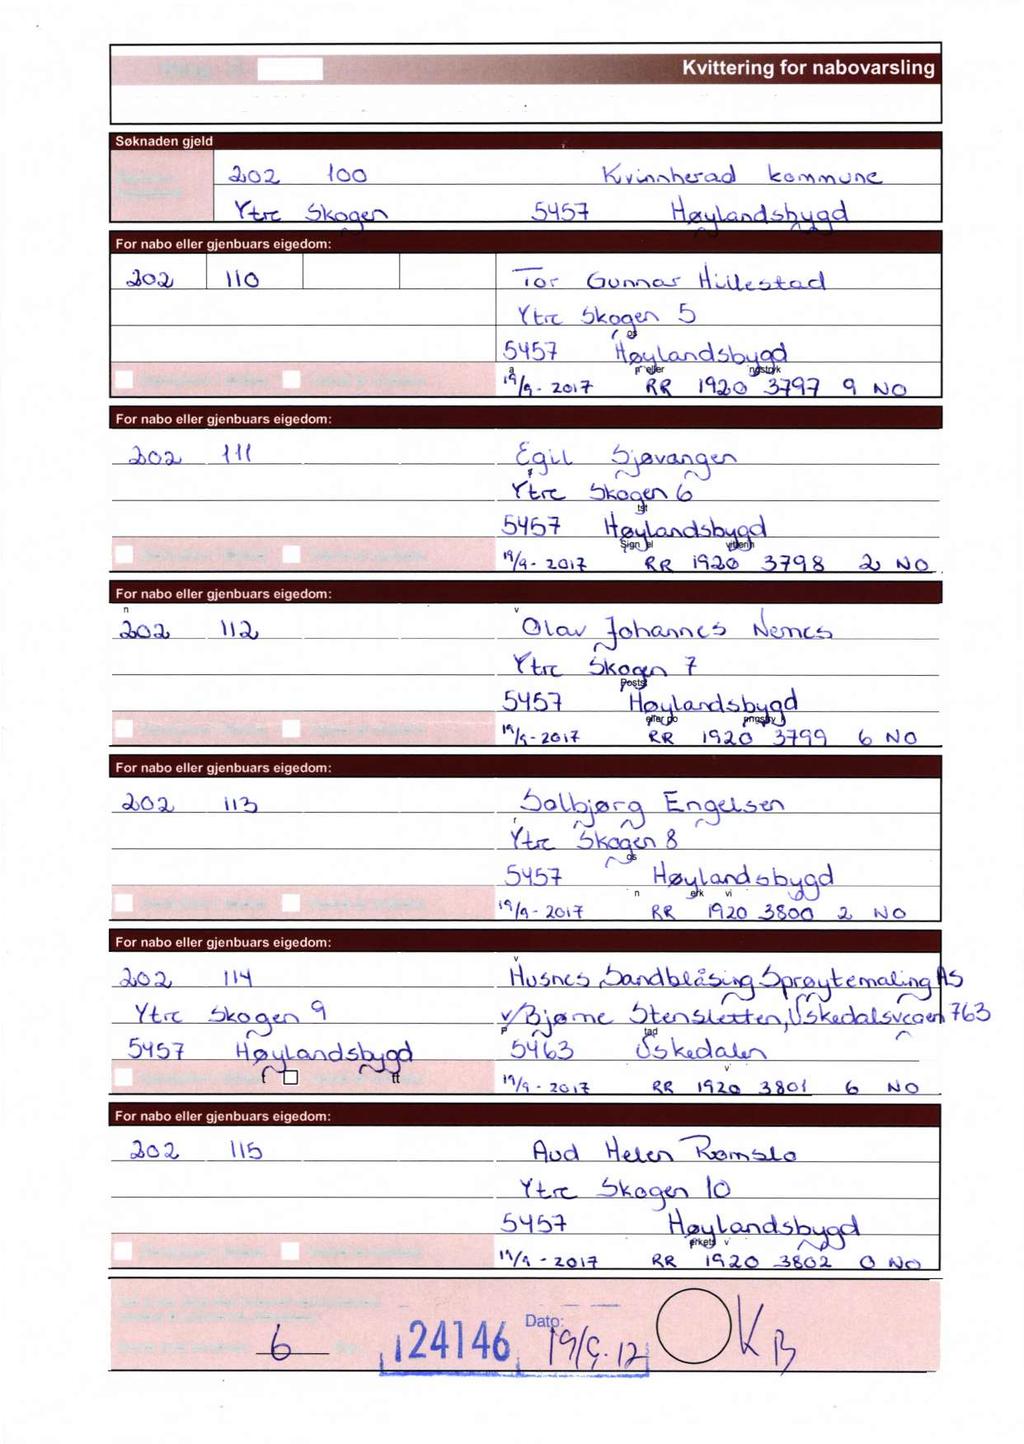 Kvittering for nabovarsling
Søknaden gjeld
202 100 Kvinnherad kommune
Ytre Skogen 5457 Høylandsbygd
For nabo eller gjenbuars eigedom:
202 110 Tor Gunnar Hillestad
Ytre Skogen 5
5457 Høylandsbygd
19/9-2017 RR 1920 3797 9 NO
For nabo eller gjenbuars eigedom:
202 111 Egil Sjøvangen
Ytre Skogen 6
5457 Høylandsbygd
19/9-2017 RR 1920 3798 2 NO
For nabo eller gjenbuars eigedom:
202 112 Olav Johannes Nemes
Ytre Skogen 7
5457 Høylandsbygd
19/9-2017 RR 1920 3799 6 NO
For nabo eller gjenbuars eigedom:
202 113 Solbjørg Engelsen
Ytre Skogen 8
5457 Høylandsbygd
19/9-2017 RR 1920 3800 2 NO
For nabo eller gjenbuars eigedom:
202 114 Husnes Sandblåsing Sprøytemaling AS
Ytre Skogen 9 v/Bjørne Stensletten, Uskedalsvegen 763
5457 Høylandsbygd 5463 Uskedalen
19/9-2017 RR 1920 3801 6 NO
For nabo eller gjenbuars eigedom:
202 115 Aud Helen Rømslo
Ytre Skogen 10
5457 Høylandsbygd
19/9-2017 RR 1920 3802 0 NO
6 124146 Dato: 19/9.17 OK